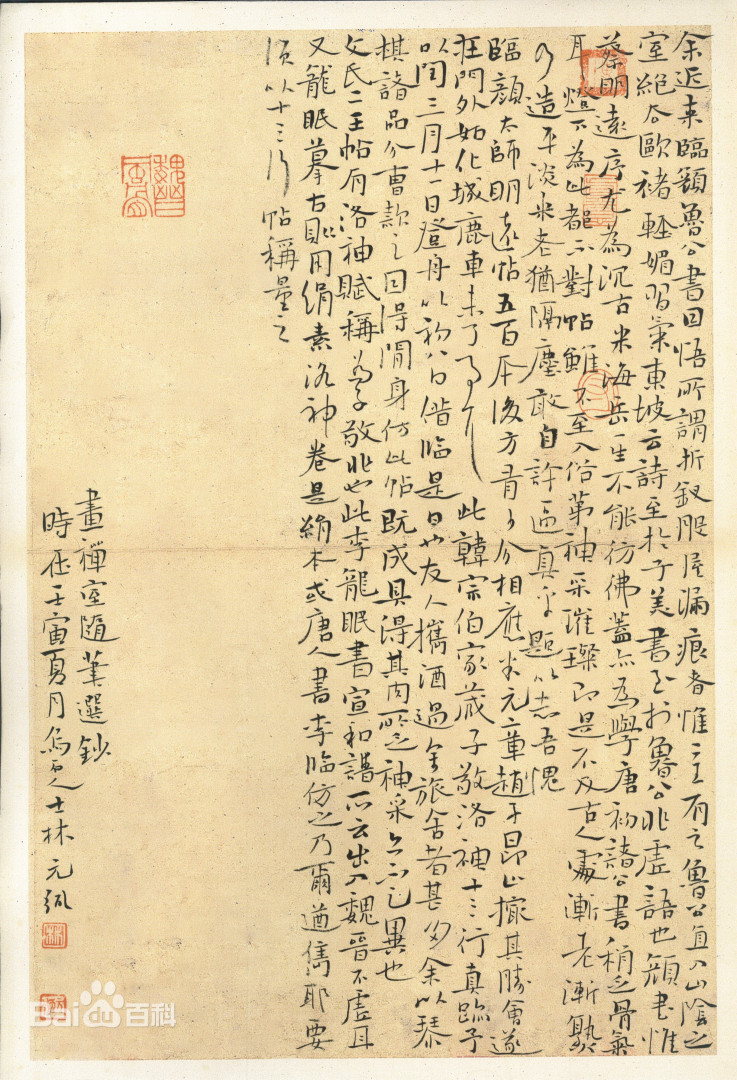 余近來臨顏魯公書因悟所謂折釵股屋漏痕者惟二王有之魯公直入山陰之
室絕去歐褚輕媚習氣東坡云詩至於子美書至於魯公非虛語也顏書惟
蔡明遠序尤為沉古米海岳一生不能彷彿蓋亦為學唐初諸公書稍乏骨氣
耳燈下為此都不對帖雖不至入俗第神采璀璨即是不及古人處漸老漸熟
乃造平淡米老猶隔塵敢自許逼真乎題以志吾愧
臨顏太師明遠帖五百本後方有少分相應米元章趙子昂止撮其勝會遂
在門外如化城鹿車未了事耳 此韓宗伯家藏子敬洛神十三行真跡予
以閏三月十一日登舟以初八日借臨是日也友人攜酒過余旅舍者甚多余以琴
棋諸品分曹款之因得閒身仿此帖既成具得其肉所乏神采亦不足異也
文氏二王帖有洛神賦稱為子敬非也此李龍眠書宣和譜所云出入魏晉不虛耳
又龍眠摹古則用絹素洛神卷是絹本或唐人書李臨仿之乃爾遒雋耶要
須以十三行帖稱量之
畫禪室隨筆選鈔
時在壬寅夏月烏石人士林元
Baidu百科